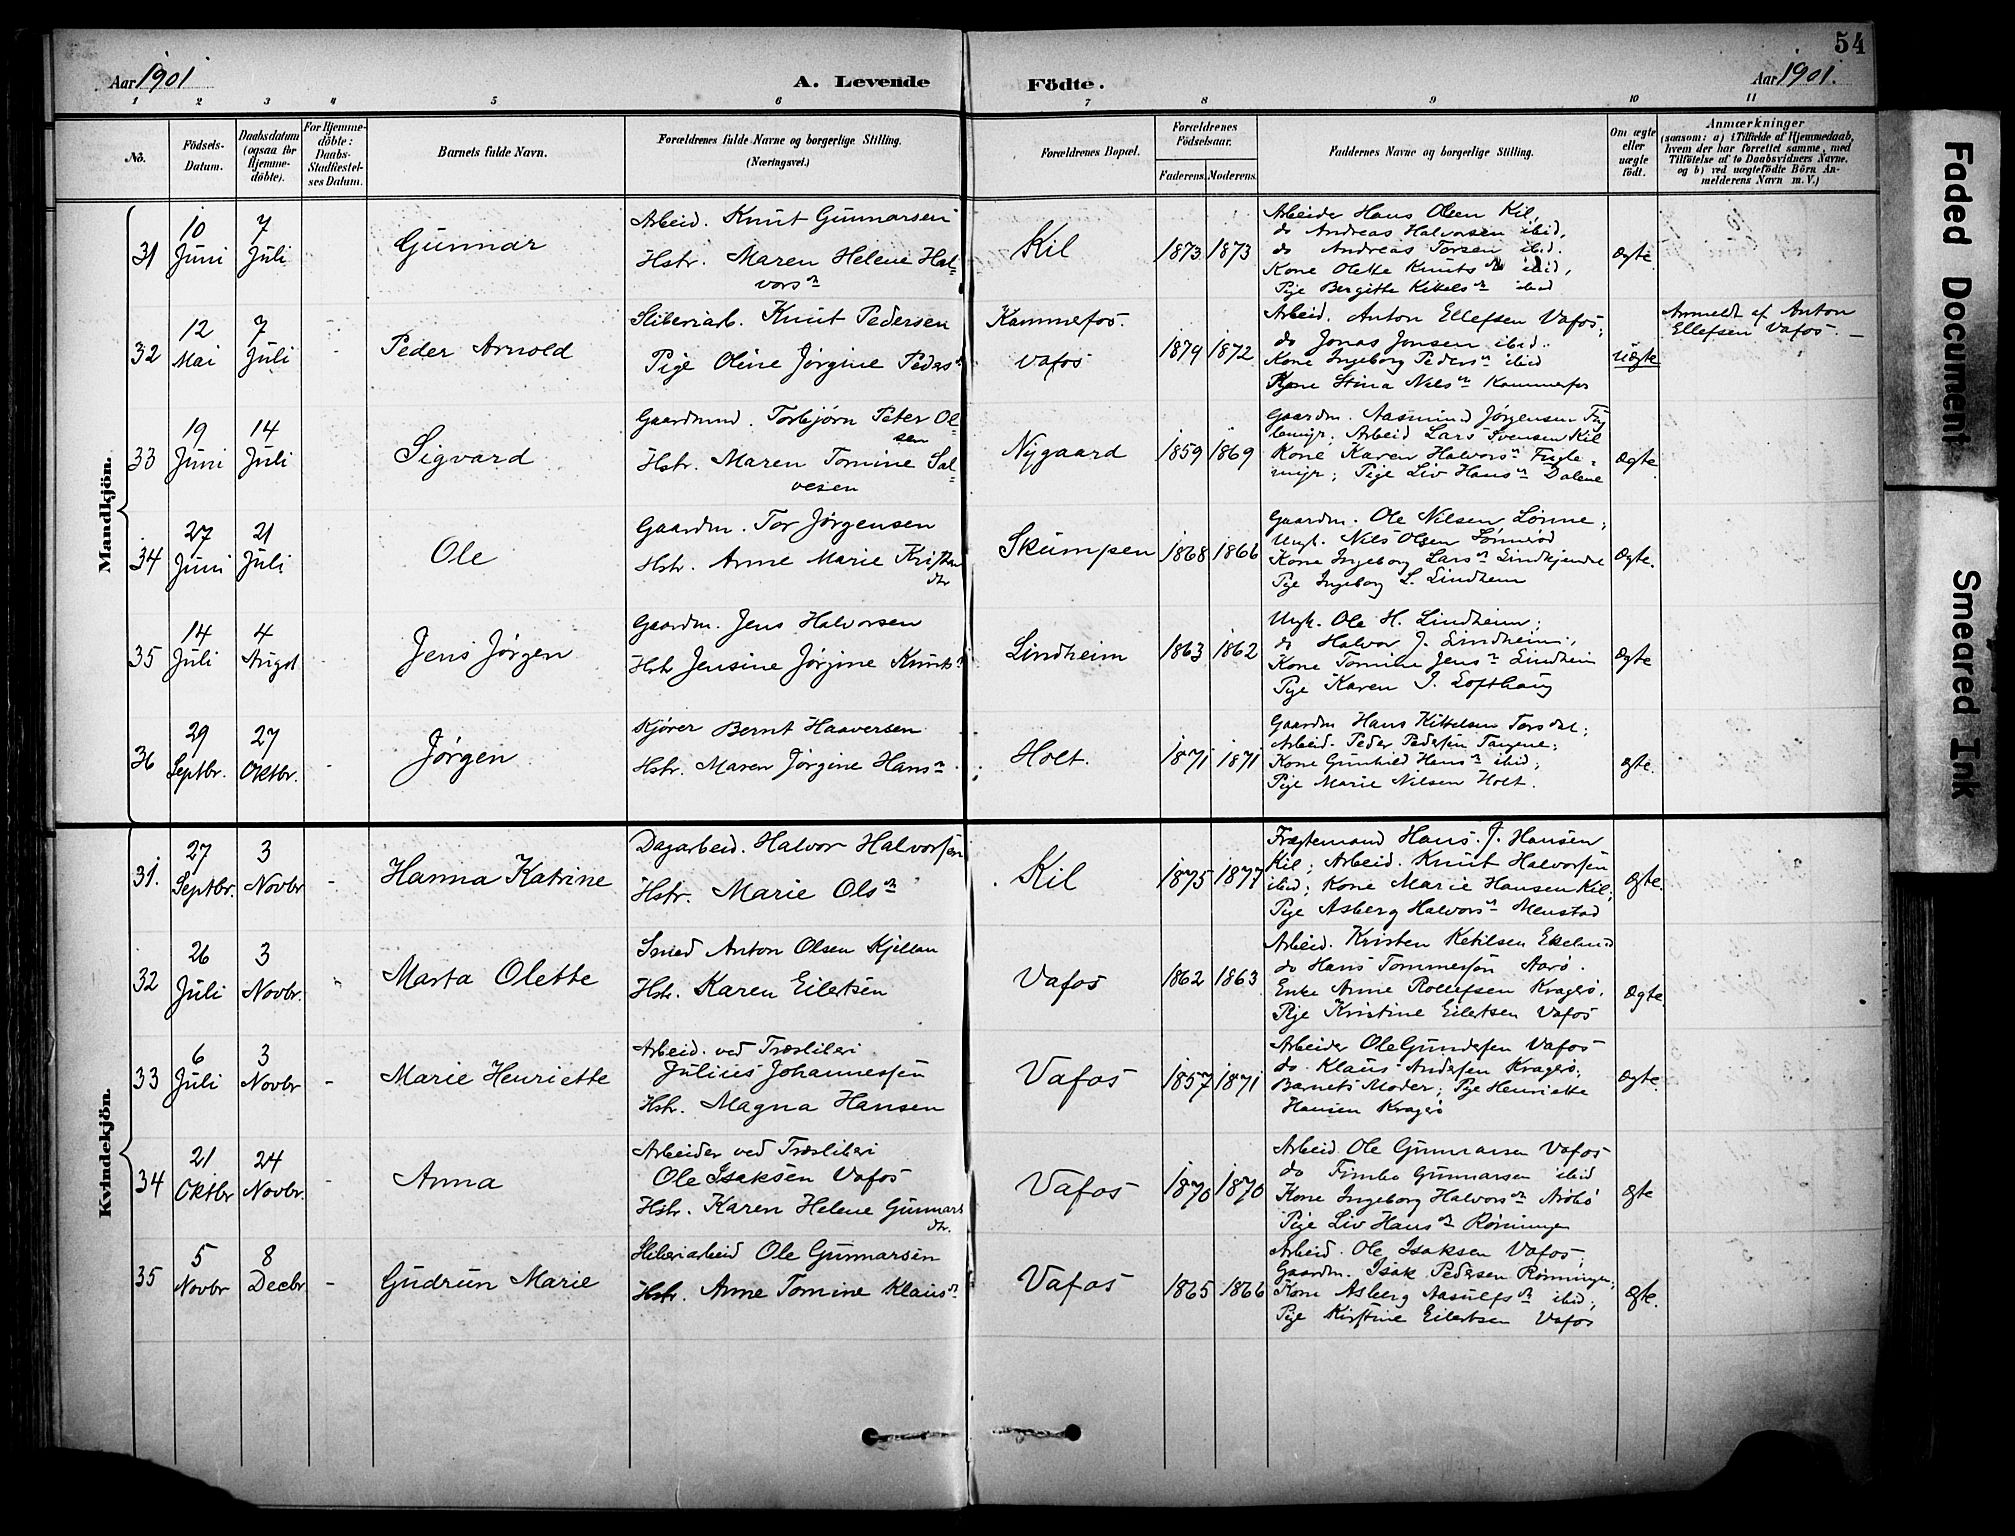 54
Aar 1901
A. Levende
Födte.
Aar 1901.
1 2 3 4 5 6 7 8 9 10 11
No.
Födsels-
Datum.
Daabsdatum
(ogsaa for
Hjemme-
döbte).
For Hjemme-
döbte:
Daabs-
Stadfæstel-
ses Datum.
Barnets fulde Navn.
Forældrenes fulde Navne og borgerlige Stilling.
(Næringsvei.)
Forældrenes Bopæl.
Forældrenes
Födselsaar.
Faderens. Moderens.
Faddernes Navne og borgerlige Stilling.
Om ægte
eller
uægte
födt.
Anmærkninger
(saasom: a) i Tilfælde af Hjemmedaab,
hvem der har forrettet samme, med
Tilföielse af to Daabsvidners Navne.
og b) ved uægtefödte Börn An-
melderens Navn m. V.)
Mandkjön.
31
10
Juni
7
Juli
Gunnar
Arbeid. Knut Gunnarsen
Hstr. Maren Helene Hal-
vorsdr
Kil
1873 1873
Arbeider Hans Olsen Kil,
do Andreas Halvorsen ibid,
do Andreas Torsen ibid.
Kone Olette Knutsdr ibid,
Pige Bergitte Kittelsdr ibid
Ægte.
32
12
Mai
7
Juli
-
Peder Arnold
Sliberiarb. Knut Pedersen
Pige Oline Jørgine Pedersdr
Kammefos.
Vafos
1879 1872
Arbeid. Anton Ellefsen Vafos;
do Jonas Jonsen ibid.
Kone Ingeborg Pedersdr ibid
Kone Stina Nilsdr Kammefos
Uægte
Anmeldt af Anton
Ellefsen Vafos. –
33
19
Juni
14
Juli
Sigvard
Gaardmd. Torbjørn Peter Ol-
sen
Hstr. Maren Tomine Sal-
vesen
Nygaard
1859 1869
Gaardm. Aasmund Jørgensen Fug
lemyr. Arbeid Lars Svensen Kil
Kone Karen Halvorsdr Fugle-
myr; Pige Liv Hansdr Dalene
Ægte.
34
27
Juni
21
Juli
Ole
Gaardm. Tor Jørgensen
Hstr. Anne Marie Kristen
dtr
Skumpen
1868 1866
Gaardm. Ole Nilsen Lønne;
Ungk. Nils Olsen
Kone Ingeborg Larsdr Lindkjendte
Pige Ingeborg L. Lindheim
Ægte.
35
14
Juli
4
Augst
Jens Jørgen
Gaardm. Jens Halvorsen
Hstr Jensine Jørgine Knutsdr
Lindheim
1863 1862
Ungk. Ole H. Lindheim;
do Halvor J. Lindheim;
Kone Tomine Jensdr Lindheim
Pige Karen J. Lofthaug
Ægte
36
29
Septbr.
27
Oktbr.
-
Jørgen
Kjører Bernt Haaversen
Hstr. Maren Jørgine Hansdr
Holt.
1871 1871
Gaardm Hans Kittelsen Torsdal;
Arbeid. Peder Pedersen Tangene;
Kone Gunhild Hansdr ibid;
Pige Marie Nilsen Holt.
Ægte.
Kvindekjön.
31.
27
Septbr.
3
Novbr
-
Hanna Katrine
Dagarbeid. Halvor Halvorsen
Hstr. Marie Olsdr
Kil
1875 1877
Frægtemand Hans J. Hansen
Kil; Arbeid. Knut Halvorsen
ibid; Kone Marie Hansen Kil;
Pige Asberg Halvorsdr Menstad
Ægte.
32
26
Juli
3
Novbr.
Marta Olette
Smed Anton Olsen Kjellan
Hstr. Karen Eilertsen
Vafos
1862 1863
Arbeid. Kristen Ketilsen Ekelund
do Hans Tommesen Aarø.
Enke Anne Rollefsen Kragerø.
Pige Kristine Eilertsen Vafos
Ægte
33
6
Juli
3
Novbr
-
Marie Henriette
Arbeid. ved Træsliberi
Julius Johannessen
Hstr. Magna Hansen
Vafos
1857 1871
Arbeider Ole Gundersen Vafos
do. Klaus Andersen Kragerø;
Barnets Moder; Pige Henriette
Hansen Kragerø
Ægte.
34
21
Oktbr
24
Novbr.
-
Anna
Arbeider ved Træsliberi
Ole Isaksen Vafos
Hstr. Karen Helene Gunnars
dtr.
Vafos
1870 1870
Arbeid Ole Gunnarsen Vafos
do Timbo Gunnarsen ibid
Kone Ingeborg Halvorsdr Arøbø
Pige Liv Hansdr Rønningen
Ægte
35
5
Novbr
8
Decbr
-
Gudrun Marie
Sliberiarbeid Ole Gunnarsen
Hstr. Anne Tomine Klausdr
Vafos
1865 1866
Arbeid. Ole Isaksen Vafos;
Gaardm. Isak Pedersen Rønningen;
Kone Asberg Aasulfsdr ibid;
Pige Kirstine Eilertsen Vafos
Ægte.
Faded Document
Smeared Ink